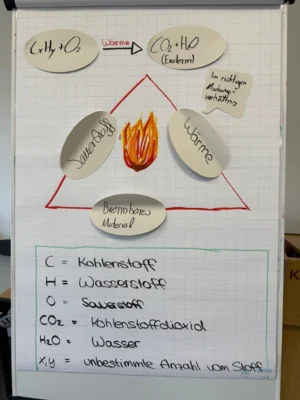 CxHy + O₂
Wärme
CO₂ + H₂O
(Exotherm)
Im richtigen
Mischungs-
verhältnis
Sauerstoff
Wärme
Brennbares
Material
C = Kohlenstoff
H = Wasserstoff
O = Sauerstoff
CO₂ = Kohlenstoffdioxid
H₂O = Wasser
x,y = unbestimmte Anzahl vom Stoff